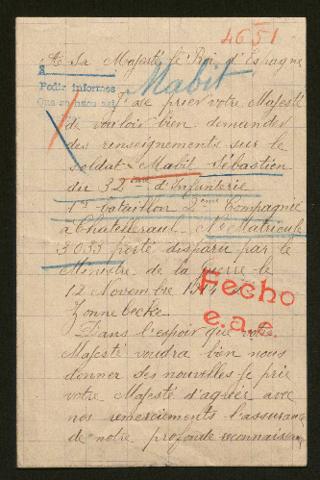 4651
A Sa Majesté le Roi d'Espagne
A
Pedir informes
Mabit
J'ose prier votre Majesté
de vouloir bien demander
des renseignements sur le
soldat Mabit Sébastien
du 32ème d'Infanterie
1er bataillon 2ème Compagnie
à Chatellerault, No Matricule
3033 porté disparu par le
Ministre de la guerre le
12 Novembre
Zonnebecke.
Fecho
e.a.c.
Dans l'espoir que votre
Majesté voudra bien nous
donner des nouvelles je prie
votre Majesté d'agréer avec
nos remerciements l'assurance
de notre profonde reconnaissance